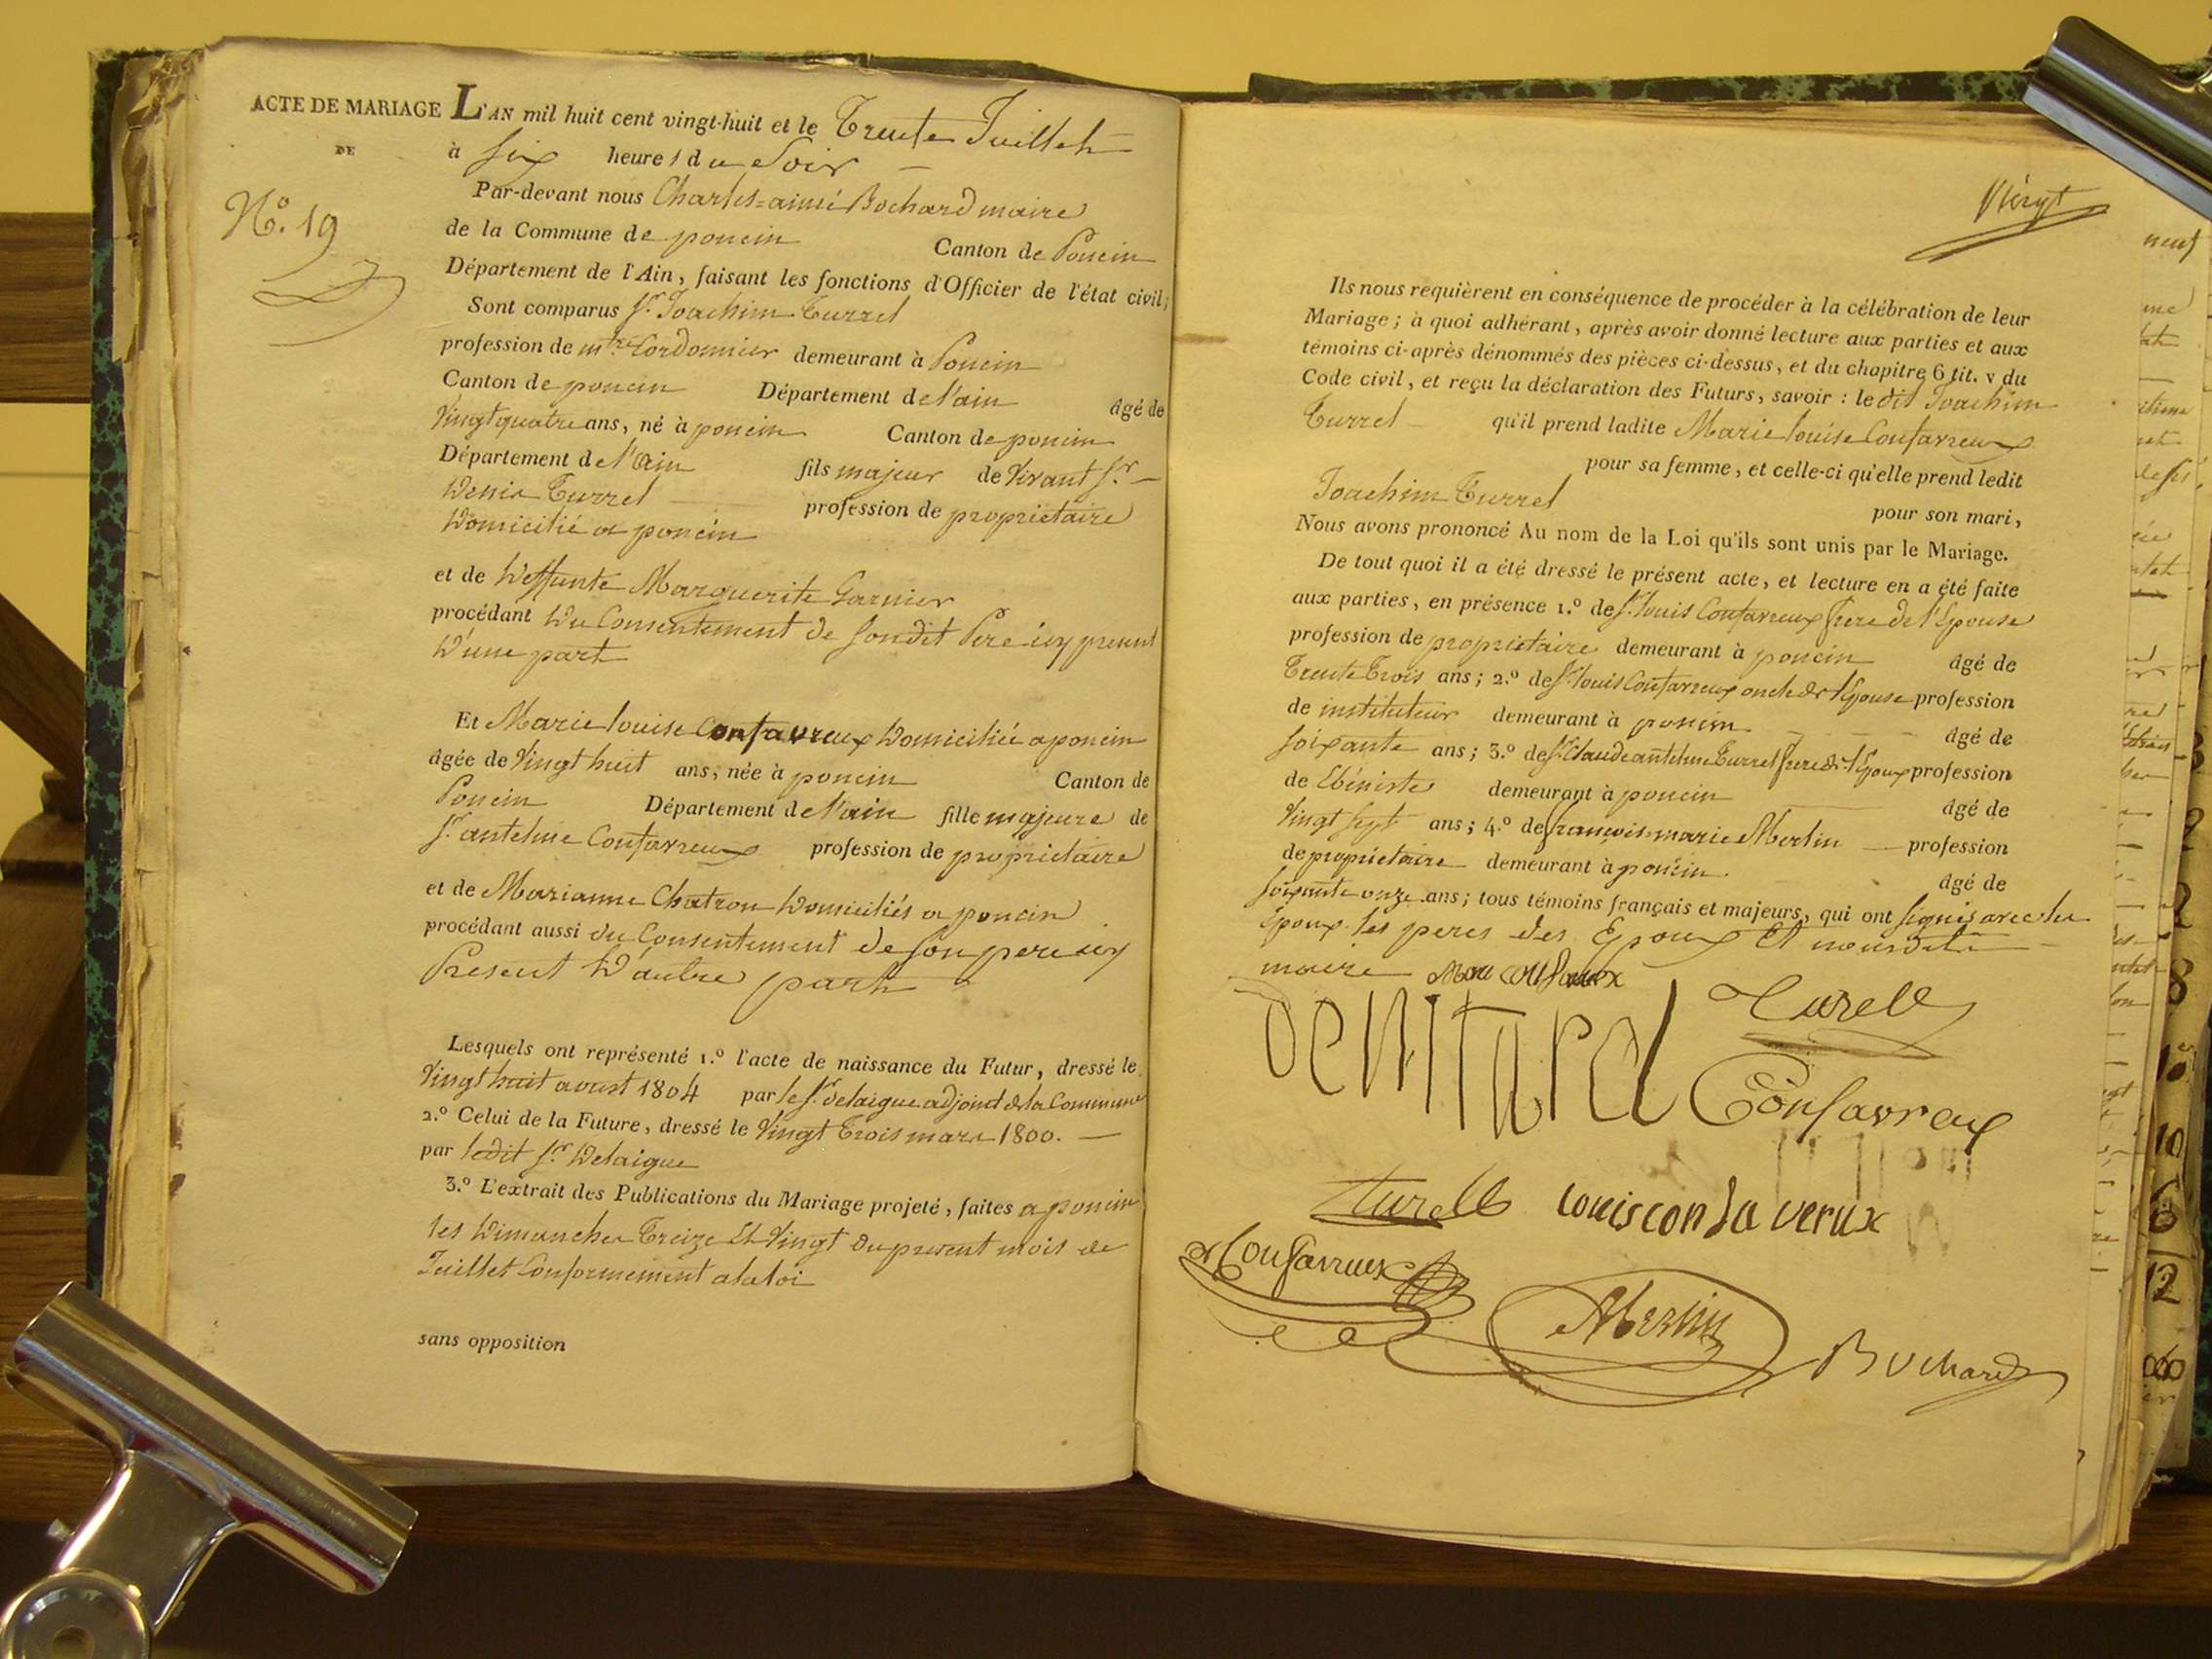 ACTE DE MARIAGE L'AN mil huit cent vingt-huit et le Trente Juillet
DE
à six heures du Soir
N.o 19
Par-devant nous Charles=aimé Bochard maire
de la Commune de poncin Canton de Poncin
Département de l'Ain, faisant les fonctions d'Officier de l'état civil;
Sont comparus Sr. Joachim Turrel
profession de mtre Cordonnier demeurant à Poncin
Canton de poncin Département de l'ain âgé de
Vingt quatre ans, né à poncin Canton de poncin
Département de l'ain fils majeur de vivant Sr.
Denis Turrel profession de proprietaire
Domicilié a poncin
et de Deffunte Marguerite Garnier
procédant Du Consentement de Sondit Pere icy present
D'une part
Et Marie louise Confavreux Domiciliée a poncin
âgée de Vingt huit ans, née à poncin Canton de
Poncin Département de l'ain fille majeure de
Sr. antelme Confavreux profession de proprietaire
et de Marianne Chatron Domiciliés a poncin
procédant aussi du Consentement de Son pere icy
Présent D'autre part
Lesquels ont représenté 1.o l'acte de naissance du Futur, dressé le
Vingt huit avout 1804 par le Sr. delaigue adjoint de la Commune
2.o Celui de la Future, dressé le Vingt Trois mars 1800.
par ledit Sr. Delaigue
3.o L'extrait des Publications du Mariage projeté, faites a poncin
les Dimanches Treize Et Vingt du present mois de
Juillet Conformement a la loi
sans opposition
Vingt
Ils nous requièrent en conséquence de procéder à la célébration de leur
Mariage; à quoi adhérant, après avoir donné lecture aux parties et aux
témoins ci-après dénommés des pièces ci-dessus, et du chapitre 6 tit. v du
Code civil, et reçu la déclaration des Futurs, savoir : le dit Joachim
Turrel qu'il prend ladite Marie louise Confavreux
pour sa femme, et celle-ci qu'elle prend ledit
Joachim Turrel pour son mari,
Nous avons prononcé Au nom de la Loi qu'ils sont unis par le Mariage.
De tout quoi il a été dressé le présent acte, et lecture en a été faite
aux parties, en présence 1.o de Sr. louis Confavreux frere de l'Epouse
profession de proprietaire demeurant à poncin âgé de
Trente Trois ans; 2.o de Sr. louis Confavreux oncle de l'Epouse profession
de instituteur demeurant à poncin âgé de
Soixante ans; 3.o de Sr. Claude antelme Turrel frere de l'Epoux profession
de Ebéniste demeurant à poncin âgé de
Vingt Sept ans; 4.o de francois-marie Merlin profession
de propriétaire demeurant à poncin. âgé de
Soixante onze ans; tous témoins français et majeurs, qui ont Signés avec les
Epoux les peres des Epoux Et nousdit
maire
Turell
Confavreux
Turell louis confaverux
Confavreux
Merlin
Bochard